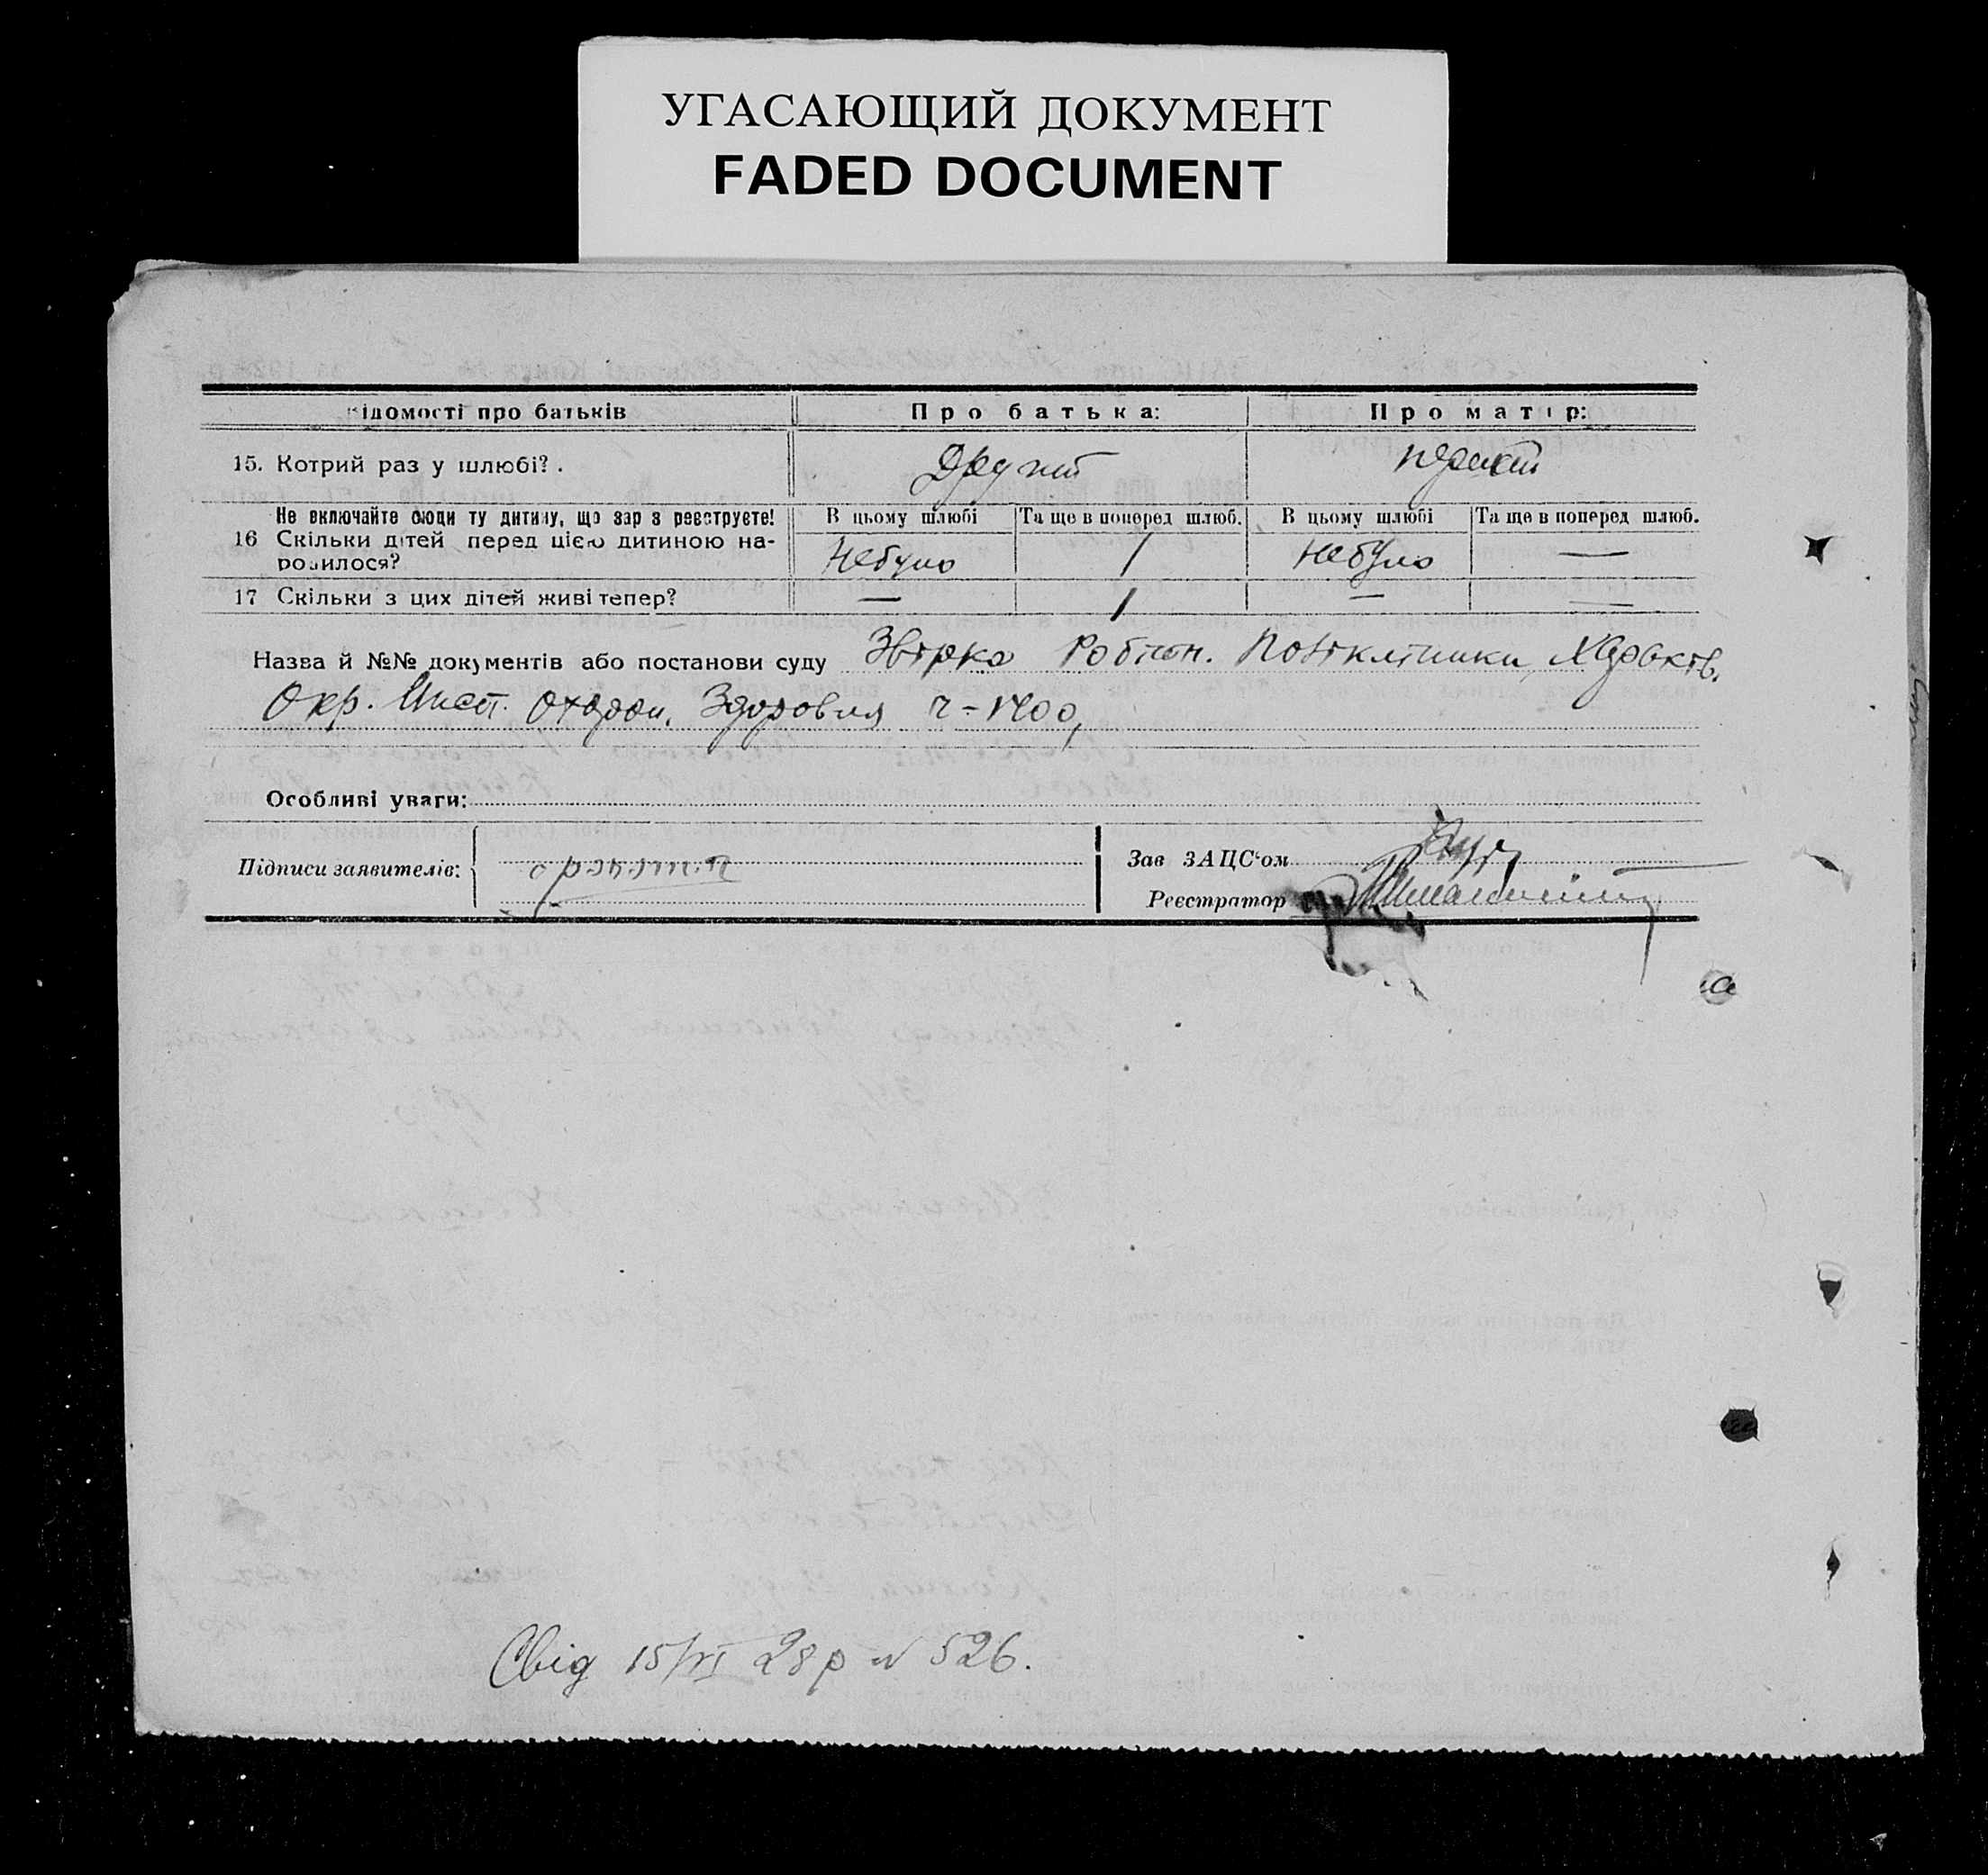 УГАСАЮЩИЙ ДОКУМЕНТ
FADED DOCUMENT
відомості про батьків Про батька: Про матір:
15. Котрий раз у шлюбі? . Другий перший
Не включайте сюди ту дитину, що зараз реєструєте! В цьому шлюбі Та ще в поперед шлюб. В цьому шлюбі Та ще в поперед шлюб.
16 Скільки дітей перед цією дитиною на-
родилося? Небуло 1 Небуло —
17 Скільки з цих дітей живі тепер? — 1 — —
Назва й №№ документів або постанови суду Звірка Робітн. Поліклініки, Харьків.
Окр. Инст. Охорон. Здоровля ч-1400,
Особливі уваги:
Підписи заявителів:
Зав ЗАЦС'ом
Реєстратор
Свід 15/VI 28 р N 526.